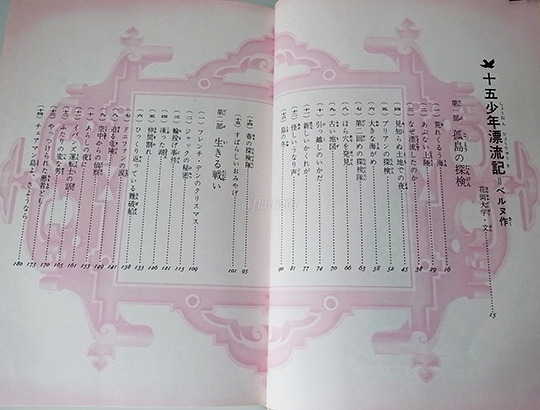 十五少年漂流記=ベルヌ作
花岡大学・文 15
第一部 孤島の探検
(一) 荒れくるう海 16
(二) あぶない上陸 29
(三) なぜ漂流したのか 38
(四) 見知らぬ土地での夜 45
(五) ブリアンの探検 52
(六) 大きな海がめ 58
(七) 第二回めの探検 63
(八) ほら穴を発見 66
(九) 古い地図 70
(十) 引っ越しのいかだ 74
(十一) 新しいかくれが 77
(十二) 怪しいうなり声 81
(十三) 島の冬 90
(十四) 春の探検隊 95
(十五) すばらしいおみやげ 101
第二部 生きる戦い
(一) フレンチ・デンのクリスマス 109
(二) ジャックの秘密
(三) 輪投げ事件
(四) 凍った湖
(五) 仲間割れ
(六) ひっくり返っている難破船 133
(七) ドニファンの涙 138
(八) 迫る危険 141
(九) 空中からの偵察 149
(十) あらしの夜に
(十一) イバンズ運転士の話
(十二) ふたりの変な男
(十三) やっつけられた悪者ども 173
(十四) チェアマン島よ、さようなら 180